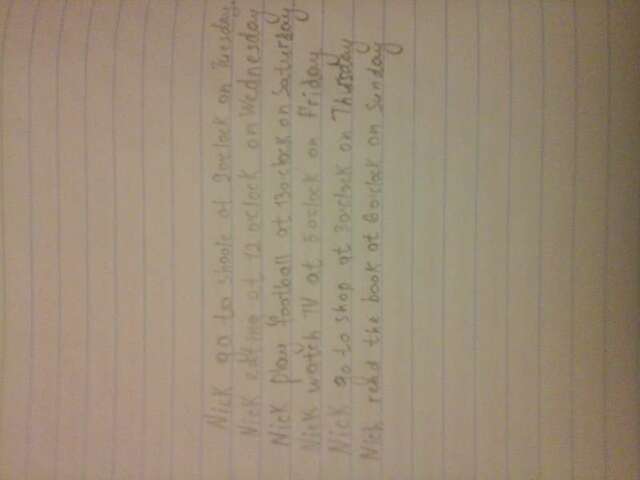 Nick go to shoole at 9oclock on Tuesday.
Nick eating at 12 oclock on Wednesday
Nick play football at 13oclock on Saturday
Nick watch TV at 5oclock on Friday
Nick go to shop at 3oclock on Thursday
Nick read the book at 6oclock on Sunday